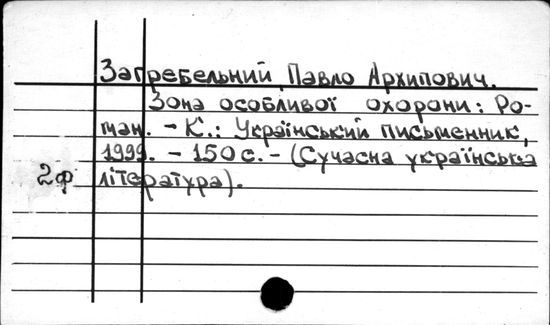 Загребельний Павло Архипович.
Зона особливої охорони: Ро-
ман. - К.: Український письменник,
1999. - 150 с. - (Сучасна українська
2ф література).